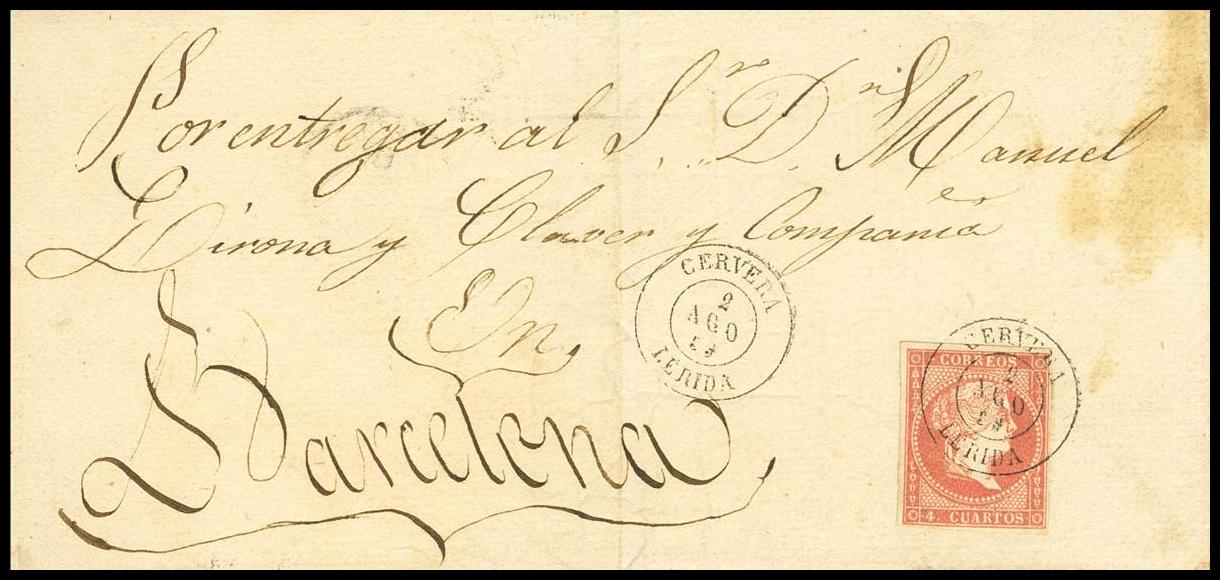 Por entregar al Sr. Dn Manuel
Girona y Claver y Compania
En,
Barcelona,
CERVERA
2
AGO
LERIDA
CORREOS
4 CUARTOS
CERVERA
2
AGO
LERIDA